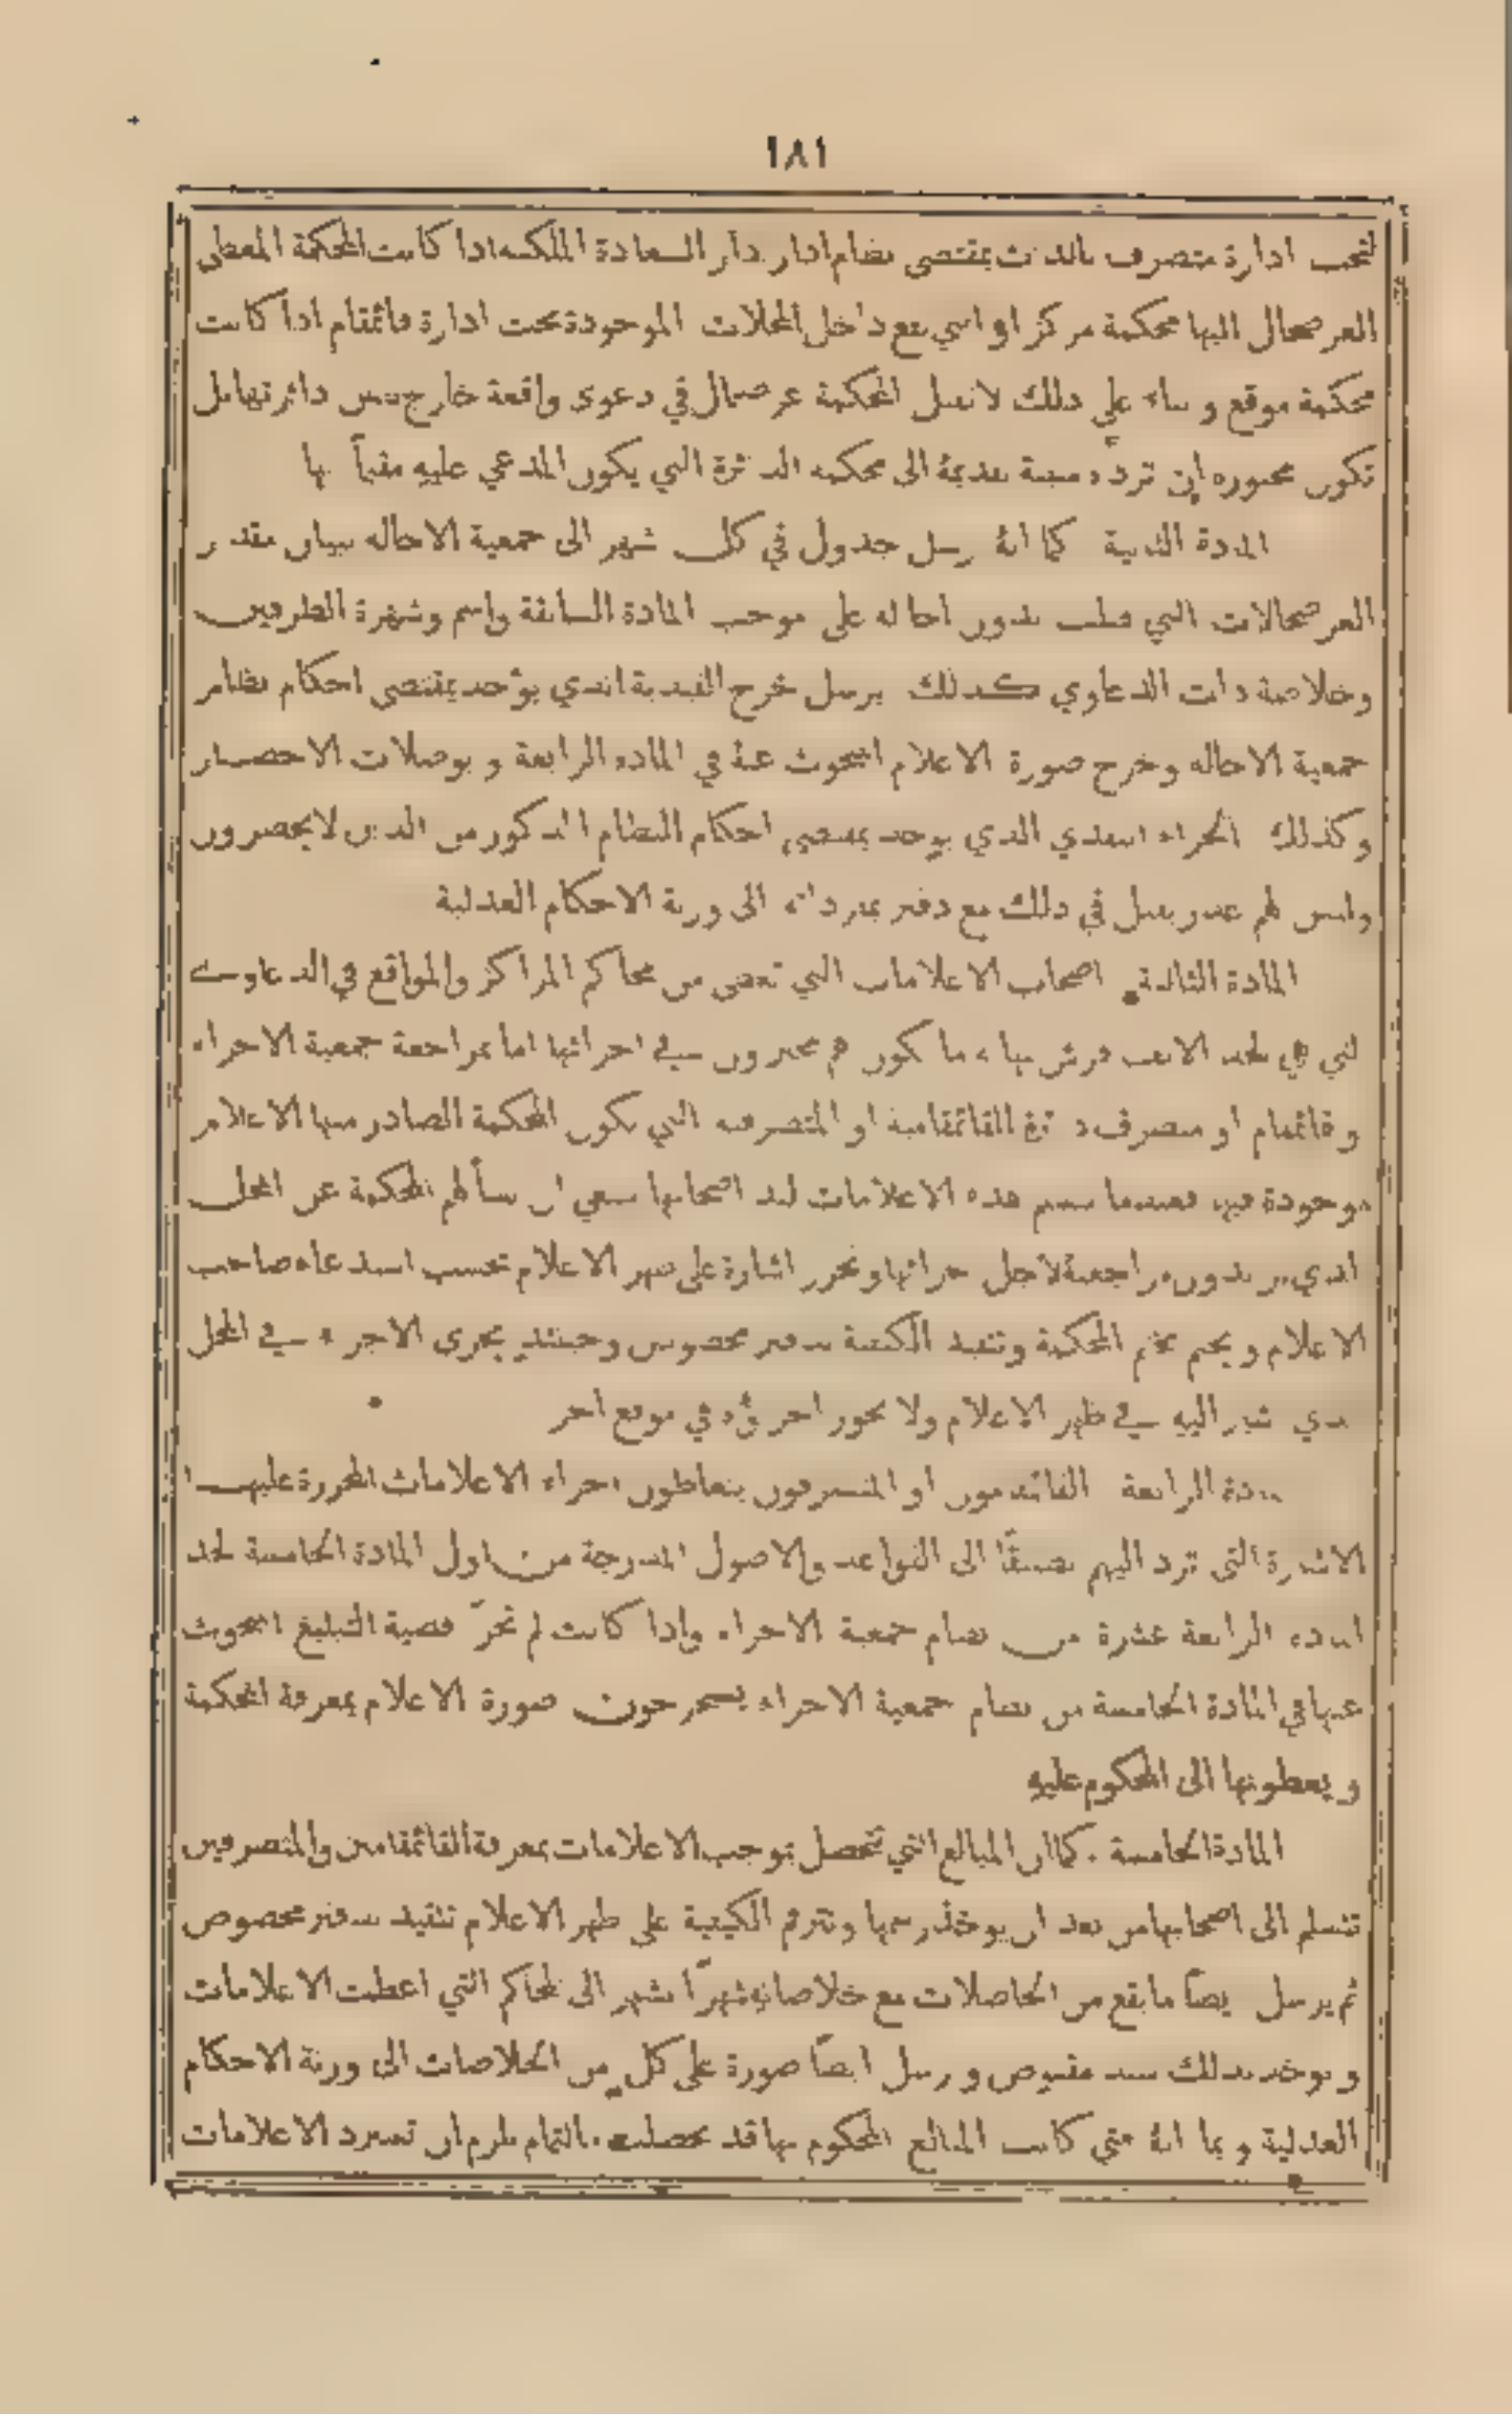 ١٨١
تحت ادارة متصرف بالذات بمقتضى نظام ادارة دار السعادة الملكية اذا كانت المحكمة المعطى
العرضحال اليها محكمة مركز او اي يقع داخل المحلات الموجودة تحت ادارة قائمقام اذا كانت
محكمة موقع وبناء على ذلك لا تقبل المحكمة عرضحال في دعوى واقعة خارج عن دائرتها بل
تكون مجبورة ان ترده مبينة تقديمه الى محكمة الدائرة التي يكون المدعي عليه مقيماً بها
المادة الثانية كما انهُ يرسل جدول في كل شهر الى جمعية الاحالة ببيان مقدار
العرضحالات التي قبلت بدون احالة على موجب المادة السابقة واسم وشهرة الطرفين
وخلاصة ذات الدعاوي كذلك يرسل خرج القيدية الذي يوْخذ بمقتضى احكام نظام
جمعية الاحالة وخرج صورة الاعلام المبحوث عنهُ في المادة الرابعة وبوصلات الاحضار
وكذلك الجزاء النقدي الذي يوخذ بمقتضى احكام النظام المذكور من الذين لا يحضرون
وليس لهم عذر يقبل في ذلك مع دفتر بمفرداته الى ورنة الاحكام العدلية
المادة الثالثة اصحاب الاعلامات التي تعطى من محاكم المراكز والمواقع في الدعاوي
التي هي لحد الالف قرش بناء ما كون هم مخيرون في اجرائها اما بمراجعة جمعية الاجراء
وقائمقام او متصرف دائرة القائمقامية او المتصرفية التي تكون المحكمة الصادر منها الاعلام
موجودة فيها فعندما تسلم هذه الاعلامات ليد اصحابها ينبغي ان تسأَلهم المحكمة عن المحل
الذي يريدون مراجعته لاجل اجرائها وتحرر اشارة على ظهر الاعلام بحسب استدعاء صاحب
الاعلام ويختم بختم المحكمة وتقيد الكيفية بدفتر مخصوص وحينئذٍ يجرى الاجراء في المحل
الذي اشير اليهِ في ظهر الاعلام ولا يجوز اجراؤُه في موقع اخر
المادة الرابعة القائمقامون او المتصرفون يتعاطون اجراء الاعلامات المحررة عليها
الاشارة التي ترد اليهم تطبيقاً الى القواعد والاصول المندرجة من اول المادة الخامسة لحد
المادة الرابعة عشرة من نظام جمعية الاجراء واذا كانت لم تجرَ قضية التبليغ المبحوث
عنها في المادة الخامسة من نظام جمعية الاجراء يستخرجون صورة الاعلام بمعرفة المحكمة
ويعطونها الى المحكوم عليهِ
المادة الخامسة كما ان المبالغ التي تتحصل بموجب الاعلامات بمعرفة القائمقامين والمتصرفين
تتسلم الى اصحابها من بعد ان يوخذ رسمها وتترقم الكيفية على ظهر الاعلام تتقيد بدفتر مخصوص
ثم يرسل ايضاً ما يقع من الحاصلات مع خلاصاتهِ شهراً شهر الى المحاكم التي اعطت الاعلامات
ويوخذ بذلك سند مقبوض ويرسل ايضاً صورة على كل من الخلاصات الى ورنة الاحكام
العدلية وبما انهُ متى كانت المبالغ المحكوم بها قد تحصلت بالتمام يلزم ان تسترد الاعلامات